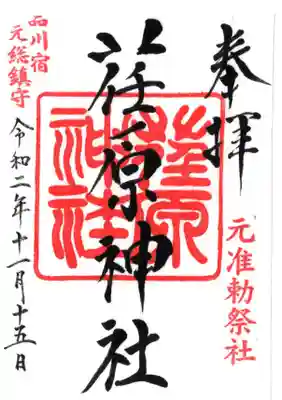 奉拝
元准勅祭社
荏原神社
荏原
神社
品川宿
元総鎮守
令和二年十一月十五日